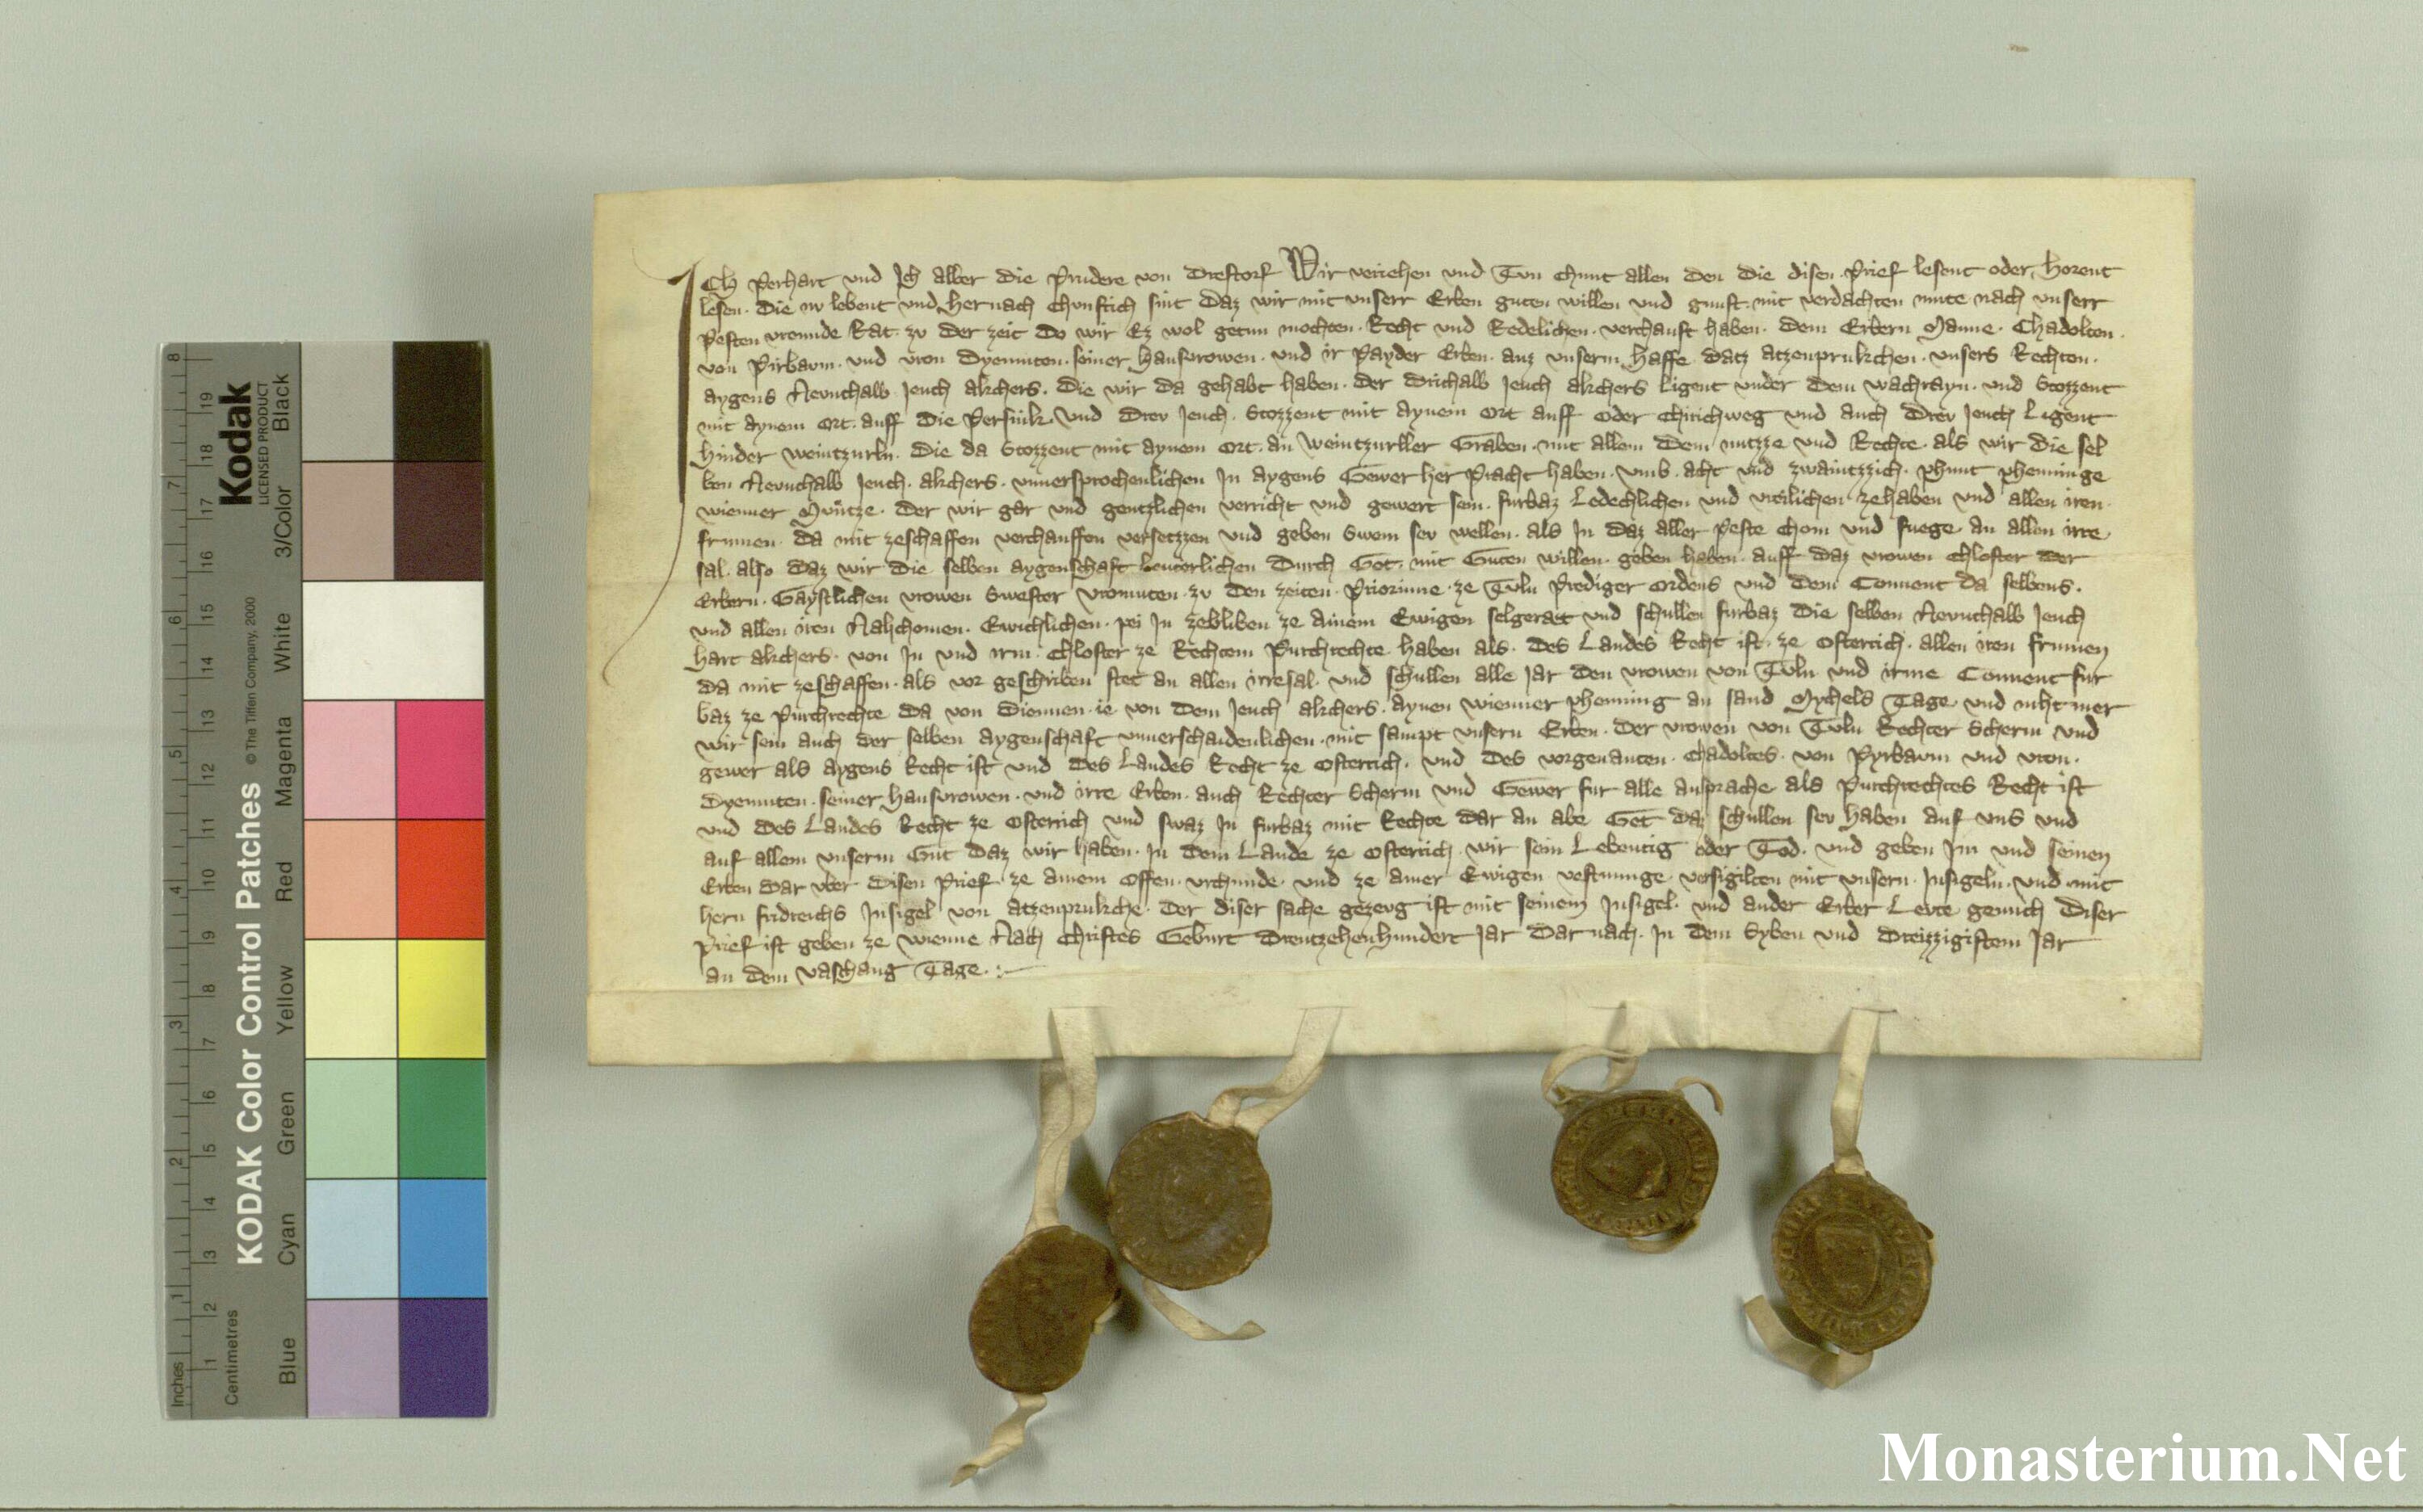 Ich Perhart und Ich alber die Prudere von Drestorf Wir veriehen und Tun chunt allen den die disen Prief lesent oder horent
lesen. die nv lebent und hernach chunftich sint daz wir mit unserr Erben guten willen und gunst. mit verdachten mute nach unserr
Pesten vreunde Rat. zv der zeit do wir Ez wol getun mochten. Recht und Redelichen. verchauft haben. dem Erbern Manne. Chadolten.
von Pirbavm. und vron Dyemuten. seiner hausvrowen. und ir Payder Erben. auz unserm haffe datz atzenprukchen. unsers Rechten.
aygens Nevnthalb Jeuch akchers. die wir da gehabt haben. der drithalb Jeuch akchers ligent under dem wachrayn. und Stozzent
mit aynem ort. auff die Persnik und drev Jeuch. Stozzent mit aynem ort auff oder Chirichweg und auch drev Jeuch Ligent
hinder weintzurln. die da Stozzent mit aynem ort. an weintzurller Graben. mit allem dem nutzze und Rechte. als wir die sel
ben Nevnthalb Jeuch. akchers. unversprochenlichen In aygens Gewer her Pracht haben. umb. acht und zwaintzzich. phunt phenninge
wienner Munzze. der wir gar und gentzlichen verricht und gewert sein. furbaz Ledechlichen und vreilichen zehaben und allen iren.
frumen. da mit zeschaffen verchauffen versetzzen und geben Swem sev wellen. als In daz aller Peste chom und fuege an allen irre
sal. also daz wir die selben aygenschaft leuterlichen durch Got. mit Guten willen. geben haben. auff daz vrowen chloster der
Erbern. Gaystlichen vrowen Swester vromuten. zv den zeiten. Priorinne. ze Tuln Prediger ordens und dem Conuent da selbens.
und allen iren Nahchomen. Ewichlichen. pei In zebliben ze ainem Ewigen selgeraet und schullen furbaz die selben Nevnthalb Jeuch
hart akchers. von In und irm. chloster ze Rechtem Purchrechte. haben als. des Landes Recht ist. ze osterrich. allen iren frumen
da mit zeschaffen. als vor geschriben stet an allen irresal. und schullen alle Jar den vrowen von Tuln und irme Conuent fur
baz ze Purchrechte da von diennen. ie von dem Jeuch akchers. aynen wienner phenning an sand Mychels Tage. und niht mer
wir sein auch der selben aygenschaft unverschaidenlichen. mit sampt unsern Erben. der vrowen von Tuln Rechter Scherm und
gewer als aygens Recht ist und des Landes Recht ze osterrich. und des vorgenanten. Chadoltes. von Pyrbavm und vron.
Dyemuten. seiner hausvrowen. und irre Erben. auch Rechter Scherm und Gewer fur alle ansprache als Purchrechtes Recht ist
und des Landes Recht ze osterrich und swaz In furbaz mit Rechte dar an abe Get daz schullen sev haben auf uns und
auf allem unserm Gut daz wir haben. In dem Lande ze osterrich wir sein Lebentig oder Tod. und geben Im und seinen
Erben dar uber disen Prief. ze ainem offen. urchunde. und ze ainer Ewigen vestnunge. versigilten mit unsern. Insigeln. und mit
hern fridreichs Insigel von atzenprukche. der diser sache gezeug ist mit seinem Insigel. und ander Erber Levte genuch diser
Prief ist geben ze wienne Nach Christes Geburt dreutzehenhundert Jar dar nach. In dem Syben und dreizzigistem Jar
an dem vaschang Tage.
Kodak
LICENSED PRODUCT
KODAK Color Control Patches
© The Tiffen Company, 2000
Black
3/Color
White
Magenta
Red
Yellow
Green
Cyan
Blue
Inches
1 2 3 4 5 6 7 8
Centimetres
1 2 3 4 5 6 7 8 9 10 11 12 13 14 15 16 17 18 19
Monasterium.Net